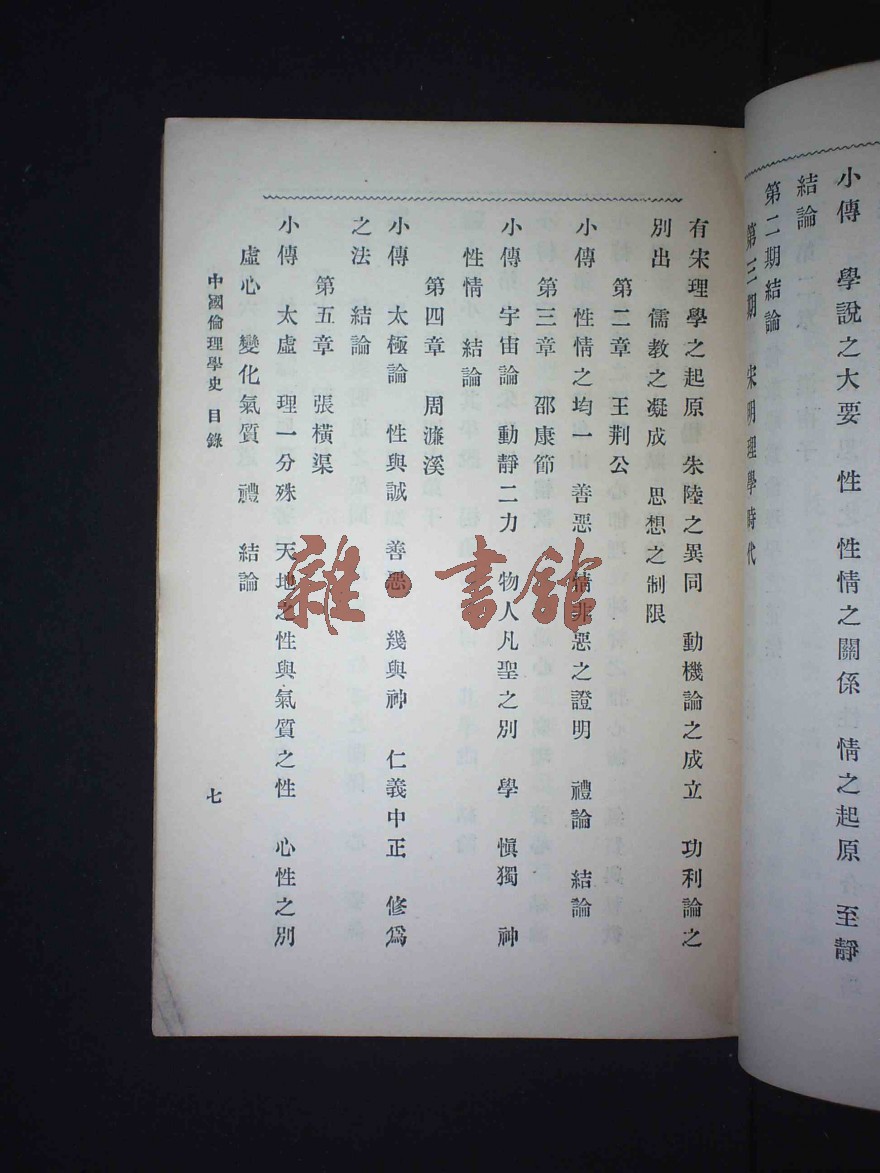 小傳 學說之大要 性 性情之關係 情之起原 至靜
結論
第二期結論
第三期 宋明理學時代
有宋理學之起原 朱陸之異同 動機論之成立 功利論之
別出 儒教之凝成 思想之制限
第二章 王荊公
小傳 性情之均一 善惡 情非惡之證明 禮論 結論
第三章 邵康節
小傳 宇宙論 動靜二力 物人凡聖之別 學 愼獨 神
性情 結論
第四章 周濂溪
小傳 太極論 性與誠 善惡 幾與神 仁義中正 修爲
之法 結論
第五章 張橫渠
小傳 太虛 理一分殊 天地之性與氣質之性 心性之別
虛心 變化氣質 禮 結論
中國倫理學史 目錄
七
雜·書館